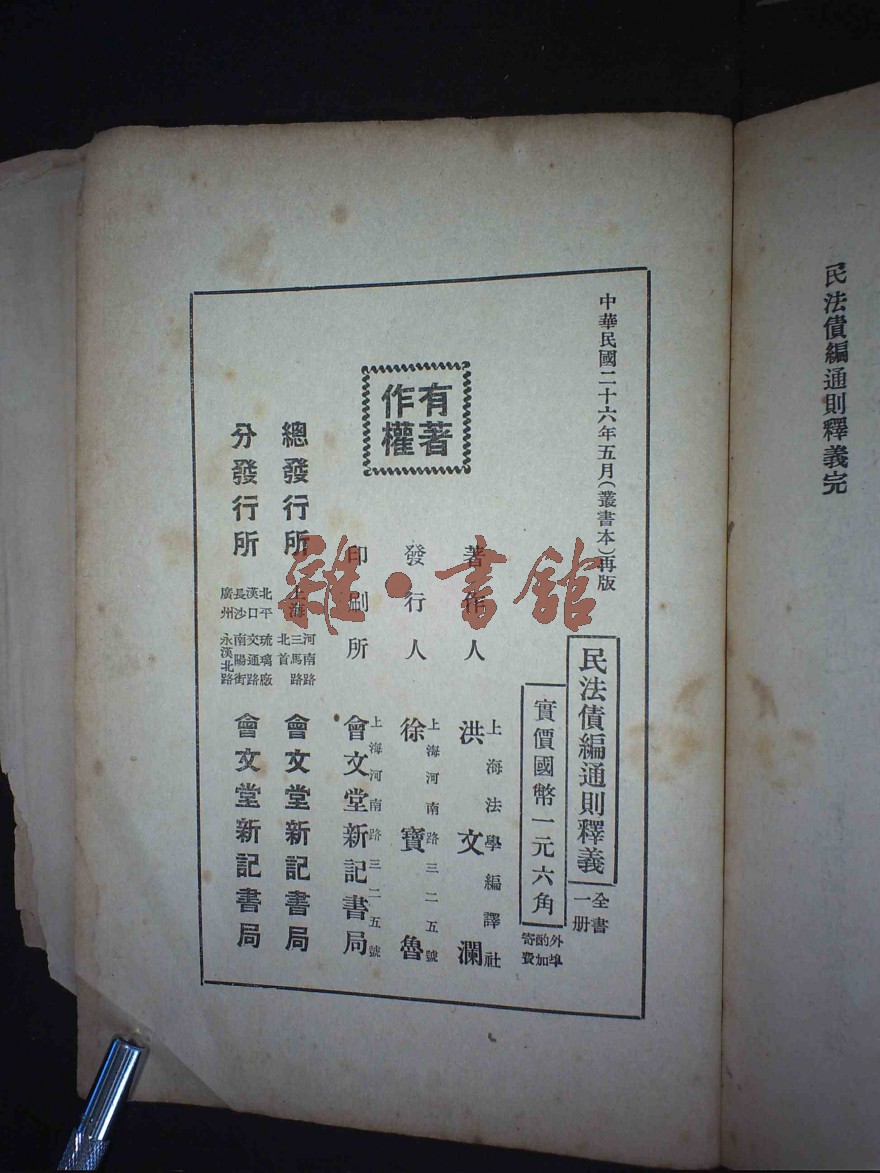 民法債編通則釋義完
中華民國二十六年五月(叢書本)再版
民法債編通則釋義
全書一册
實價國幣一元六角
外埠酌加寄費
上海法學編譯社
著作人 洪文瀾
上海河南路三二五號
發行人 徐寶魯
上海河南路三二五號
印刷所 會文堂新記書局
有著作權
總發行所 上海 河南路三馬路北首 會文堂新記書局
分發行所 北平琉璃廠 漢口交通路 長沙南陽街 廣州永漢北路 會文堂新記書局
雜·書館